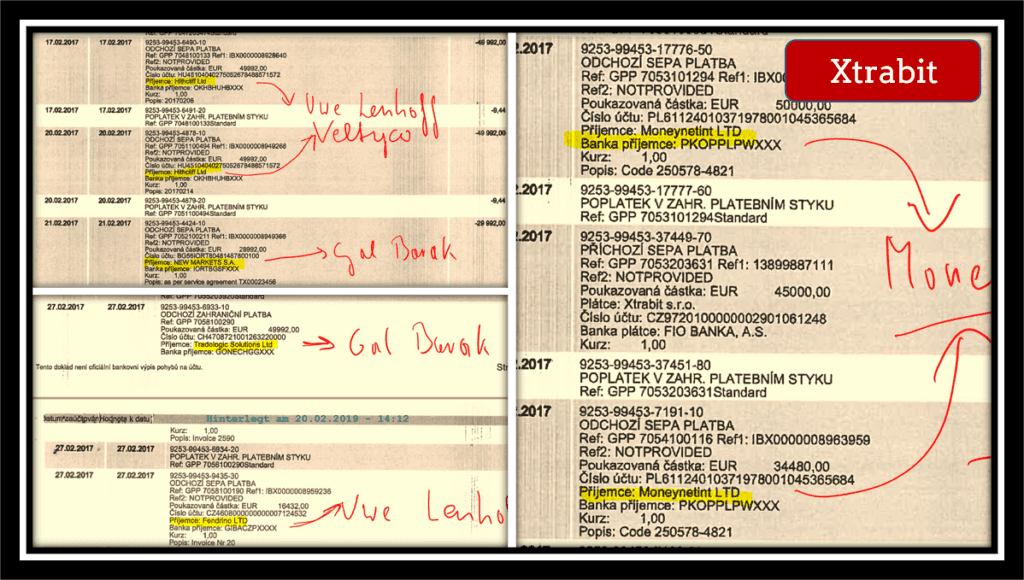 Xtrabit
17.02.2017 17.02.2017 9253-99453-6490-10 -49 992,00
ODCHOZÍ SEPA PLATBA
Ref: GPP 7048100133 Ref1: IBX0000008928640
Ref2: NOTPROVIDED
Poukazovaná částka: EUR 49992,00
Číslo účtu: HU45104040275052678488571572
Příjemce: Hithcliff Ltd
Banka příjemce: OKHBHUHBXXX
Kurz: 1,00
Popis: 20170206
Uwe Lenhoff
Veltyco
17.02.2017 17.02.2017 9253-99453-6491-20 -9,44
POPLATEK V ZAHR. PLATEBNÍM STYKU
Ref: GPP 7048100133Standard
20.02.2017 20.02.2017 9253-99453-4878-10 -49 992,00
ODCHOZÍ SEPA PLATBA
Ref: GPP 7051100494 Ref1: IBX0000008949268
Ref2: NOTPROVIDED
Poukazovaná částka: EUR 49992,00
Číslo účtu: HU45104040275052678488571572
Příjemce: Hithcliff Ltd
Banka příjemce: OKHBHUHBXXX
Kurz: 1,00
Popis: 20170214
20.02.2017 20.02.2017 9253-99453-4879-20 -9,44
POPLATEK V ZAHR. PLATEBNÍM STYKU
Ref: GPP 7051100494Standard
21.02.2017 21.02.2017 9253-99453-4424-10 -29 992,00
ODCHOZÍ SEPA PLATBA
Ref: GPP 7052100211 Ref1: IBX0000008949366
Ref2: NOTPROVIDED
Poukazovaná částka: EUR 29992,00
Číslo účtu: BG56IORT80481487800100
Příjemce: NEW MARKETS S.A.
Banka příjemce: IORTBGSFXXX
Kurz: 1,00
Popis: as per service agreement TX00023456
Gal Barak
27.02.2017 27.02.2017 9253-99453-6933-10
ODCHOZÍ ZAHRANIČNÍ PLATBA
Ref: GPP 7058100290
Poukazovaná částka: EUR 49992,00
Číslo účtu: CH4708721001263220000
Příjemce: Tradologic Solutions Ltd
Banka příjemce: GONECHGGXXX
Gal Barak
Tento doklad není oficiální bankovní výpis pohybů na účtu. Str
Hodnota k datu:
Hinterlegt am 20.02.2019 - 14:12
Kurz: 1,00
Popis: Invoice 2590
27.02.2017 27.02.2017 9253-99453-6934-20
POPLATEK V ZAHR. PLATEBNÍM STYKU
Ref: GPP 7058100290Standard
27.02.2017 27.02.2017 9253-99453-9435-30
ODCHOZÍ SEPA PLATBA
Ref: GPP 7058100190 Ref1: IBX0000008959236
Ref2: NOTPROVIDED
Poukazovaná částka: EUR 16432,00
Číslo účtu: CZ4608000000000007124532
Příjemce: Fendrino LTD
Banka příjemce: GIBACZPXXXX
Kurz: 1,00
Popis: Invoice Nr 20
Uwe Lenho
2.2017 9253-99453-17776-50
ODCHOZÍ SEPA PLATBA
Ref: GPP 7053101294 Ref1: IBX00
Ref2: NOTPROVIDED
Poukazovaná částka: EUR 50000,00
Číslo účtu: PL61124010371978001045365684
Příjemce: Moneynetint LTD
Banka příjemce: PKOPPLPWXXX
Kurz: 1,00
Popis: Code 250578-4821
2.2017 9253-99453-17777-60
POPLATEK V ZAHR. PLATEBNÍM STYKU
Ref: GPP 7053101294Standard
2.2017 9253-99453-37449-70
PŘÍCHOZÍ SEPA PLATBA
Ref: GPP 7053203631 Ref1: 13899887111
Ref2: NOTPROVIDED
Poukazovaná částka: EUR 45000,00
Plátce: Xtrabit s.r.o.
Číslo účtu: CZ9720100000002901061248
Banka plátce: FIO BANKA, A.S.
Kurz: 1,00
Mone
2.2017 9253-99453-37451-80
POPLATEK V ZAHR. PLATEBNÍM STYKU
Ref: GPP 7053203631Standard
2.2017 9253-99453-7191-10
ODCHOZÍ SEPA PLATBA
Ref: GPP 7054100116 Ref1: IBX0000008963959
Ref2: NOTPROVIDED
Poukazovaná částka: EUR 34480,00
Číslo účtu: PL61124010371978001045365684
Příjemce: Moneynetint LTD
Banka příjemce: PKOPPLPWXXX
Kurz: 1,00
Popis: Code 250578-4821